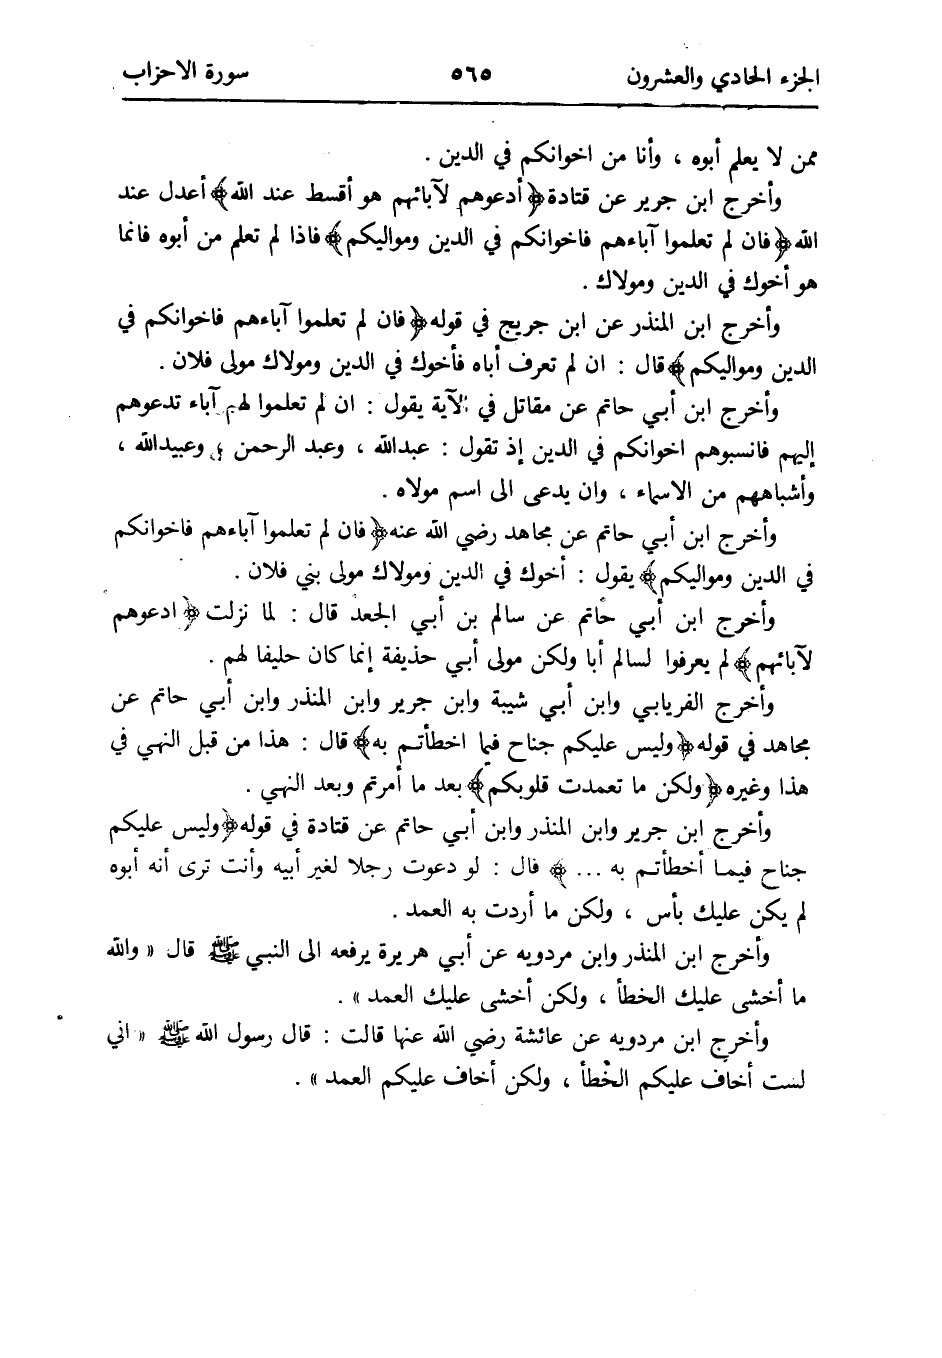 الجزء الحادي والعشرون ٥٦٥ سورة الاحزاب
ممن لا يعلم أبوه ، وأنا من اخوانكم في الدين .
وأخرج ابن جرير عن قتادة ﴿ أدعوهم لآبائهم هو أقسط عند الله ﴾ أعدل عند
الله ﴿ فان لم تعلموا آباءهم فاخوانكم في الدين ومواليكم ﴾ فاذا لم تعلم من أبوه فانما
هو أخوك في الدين ومولاك .
وأخرج ابن المنذر عن ابن جريج في قوله ﴿ فان لم تعلموا آباءهم فاخوانكم في
الدين ومواليكم ﴾ قال : ان لم تعرف أباه فأخوك في الدين ومولاك مولى فلان .
وأخرج ابن أبي حاتم عن مقاتل في الآية يقول : ان لم تعلموا لهم آباء تدعوهم
إليهم فانسبوهم اخوانكم في الدين إذ تقول : عبدالله ، وعبد الرحمن ، وعبيدالله ،
وأشباههم من الاسماء ، وان يدعى الى اسم مولاه .
وأخرج ابن أبي حاتم عن مجاهد رضي الله عنه ﴿ فان لم تعلموا آباءهم فاخوانكم
في الدين ومواليكم ﴾ يقول : أخوك في الدين ومولاك مولى بني فلان .
وأخرج ابن أبي حاتم عن سالم بن أبي الجعد قال : لما نزلت ﴿ ادعوهم
لآبائهم ﴾ لم يعرفوا لسالم أبا ولكن مولى أبي حذيفة إنما كان حليفا لهم .
وأخرج الفريابي وابن أبي شيبة وابن جرير وابن المنذر وابن أبي حاتم عن
مجاهد في قوله ﴿ وليس عليكم جناح فيما اخطأتم به ﴾ قال : هذا من قبل النهي في
هذا وغيره ﴿ ولكن ما تعمدت قلوبكم ﴾ بعد ما أمرتم وبعد النهي .
وأخرج ابن جرير وابن المنذر وابن أبي حاتم عن قتادة في قوله ﴿ وليس عليكم
جناح فيما أخطأتم به ... ﴾ قال : لو دعوت رجلا لغير أبيه وأنت ترى أنه أبوه
لم يكن عليك بأس ، ولكن ما أردت به العمد .
وأخرج ابن المنذر وابن مردويه عن أبي هريرة يرفعه الى النبي ﷺ قال « والله
ما أخشى عليك الخطأ ، ولكن أخشى عليك العمد » .
وأخرج ابن مردويه عن عائشة رضي الله عنها قالت : قال رسول الله ﷺ « اني
لست أخاف عليكم الخطأ ، ولكن أخاف عليكم العمد » .